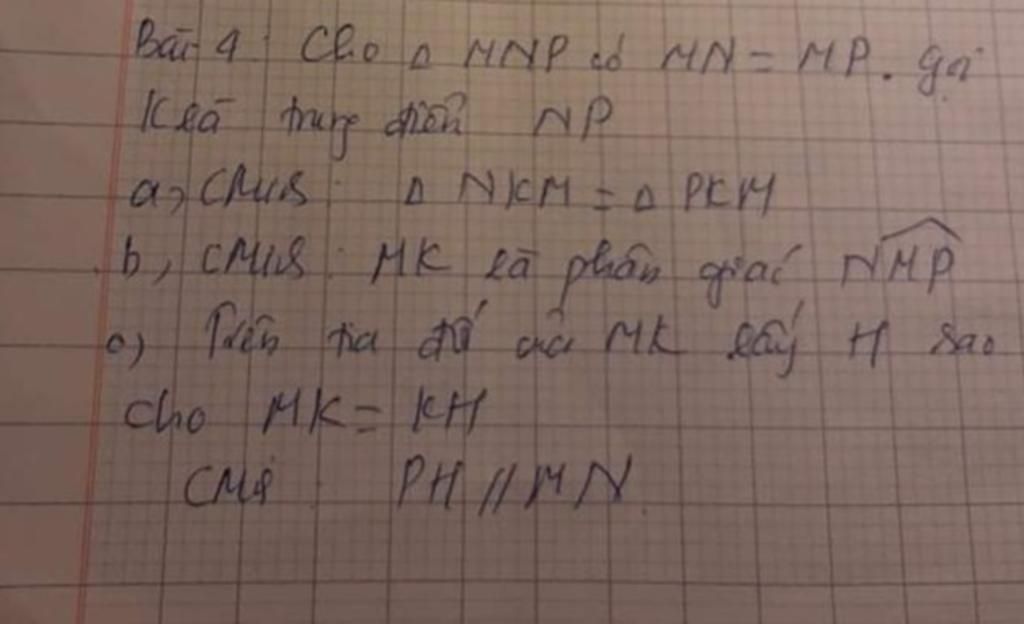 Bài 4: Cho Δ MNP có MN = MP. Gọi
K là trung điểm NP
a, CMR: Δ NKM = Δ PKM
b, CMR: MK là phân giác NMP
c) Trên tia đối của MK lấy H sao
cho MK = KH
CMR: PH // MN.